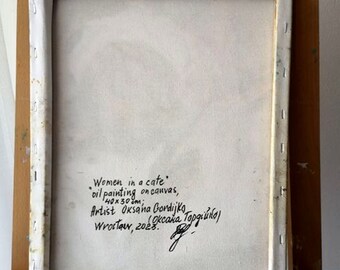 "Women in a cafe"
"oil painting on canvas,
40x30 cm;
Artist Oksana Gordijko
(Оксана Гордійко)
Wrocław, 2023.